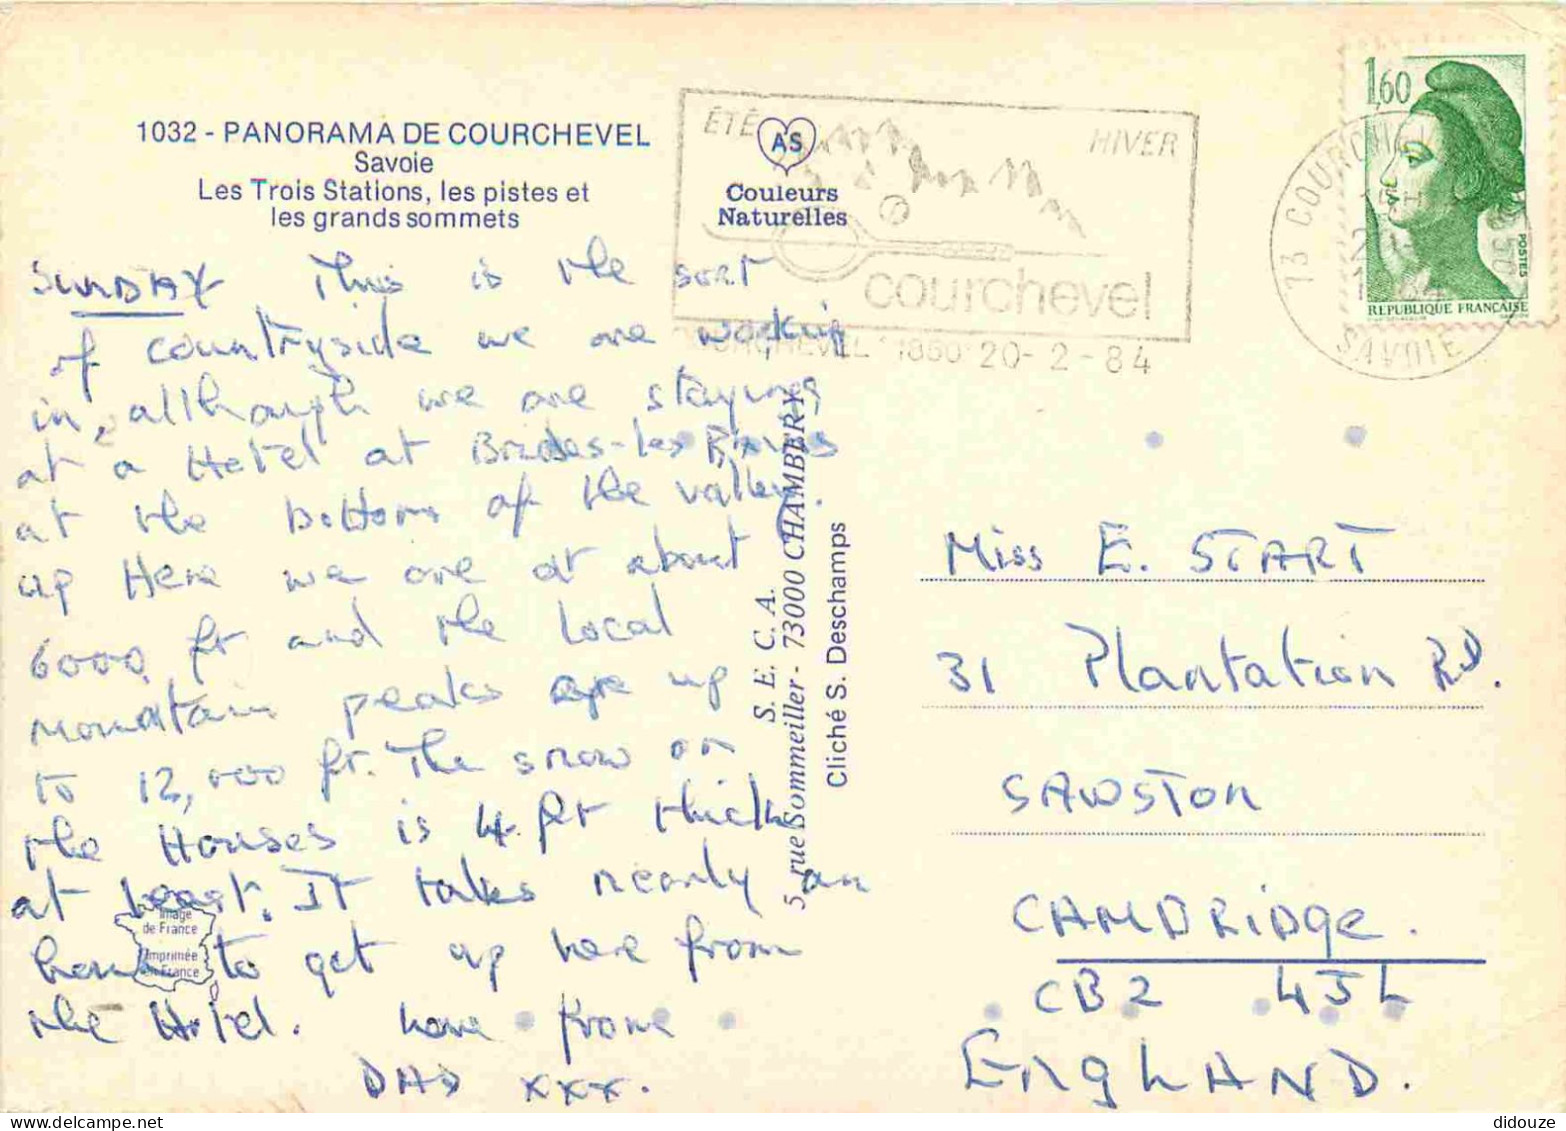 1032 - PANORAMA DE COURCHEVEL
Savoie
Les Trois Stations, les pistes et
les grands sommets
AS
Couleurs
Naturelles
ÉTÉ
HIVER
courchevel
COURCHEVEL 1850 20-2-84
73 COURCHEVEL
SAVOIE
1,60
POSTES
REPUBLIQUE FRANÇAISE
SUNDAY This is the sort
of countryside we are working
in, although we are staying
at a Hotel at Brides-les Bains
at the bottom of the valley.
up Here we are at about
6000 ft and the local
Mountain peaks are up
to 12,000 ft. The snow on
the Houses is 4 ft thick
at least. It takes nearly an
hour to get up here from
the Hotel. Love from
DAD xxx.
Image
de France
Imprimée
en France
S. E. C. A.
5, rue Sommeiller - 73000 CHAMBERY
Cliché S. Deschamps
Miss E. START
31 Plantation Rd.
SAWSTON
CAMBRIDGE.
CB2 4JL
ENGLAND.
didouze